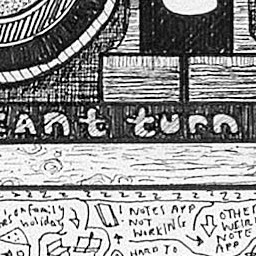 can't turn
z z z z z z z z z z z z z
on family
holiday
! NOTES APP
NOT
WORKING
HARD TO
OTHER
WEIRD
NOTE
APP